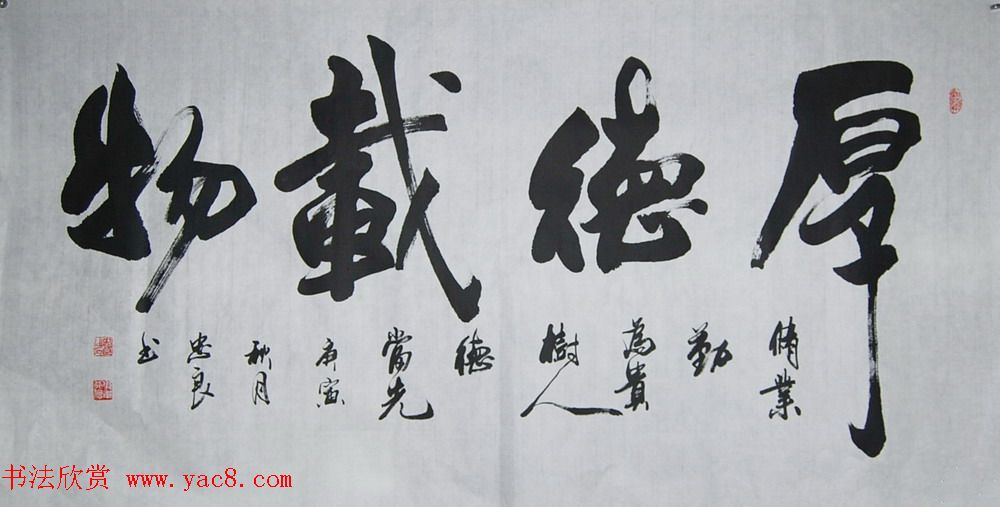 厚德載物
脩業
勤
為貴
樹人
德
當先
庚寅
秋月
忠良
书
书法欣赏 www.yac8.com